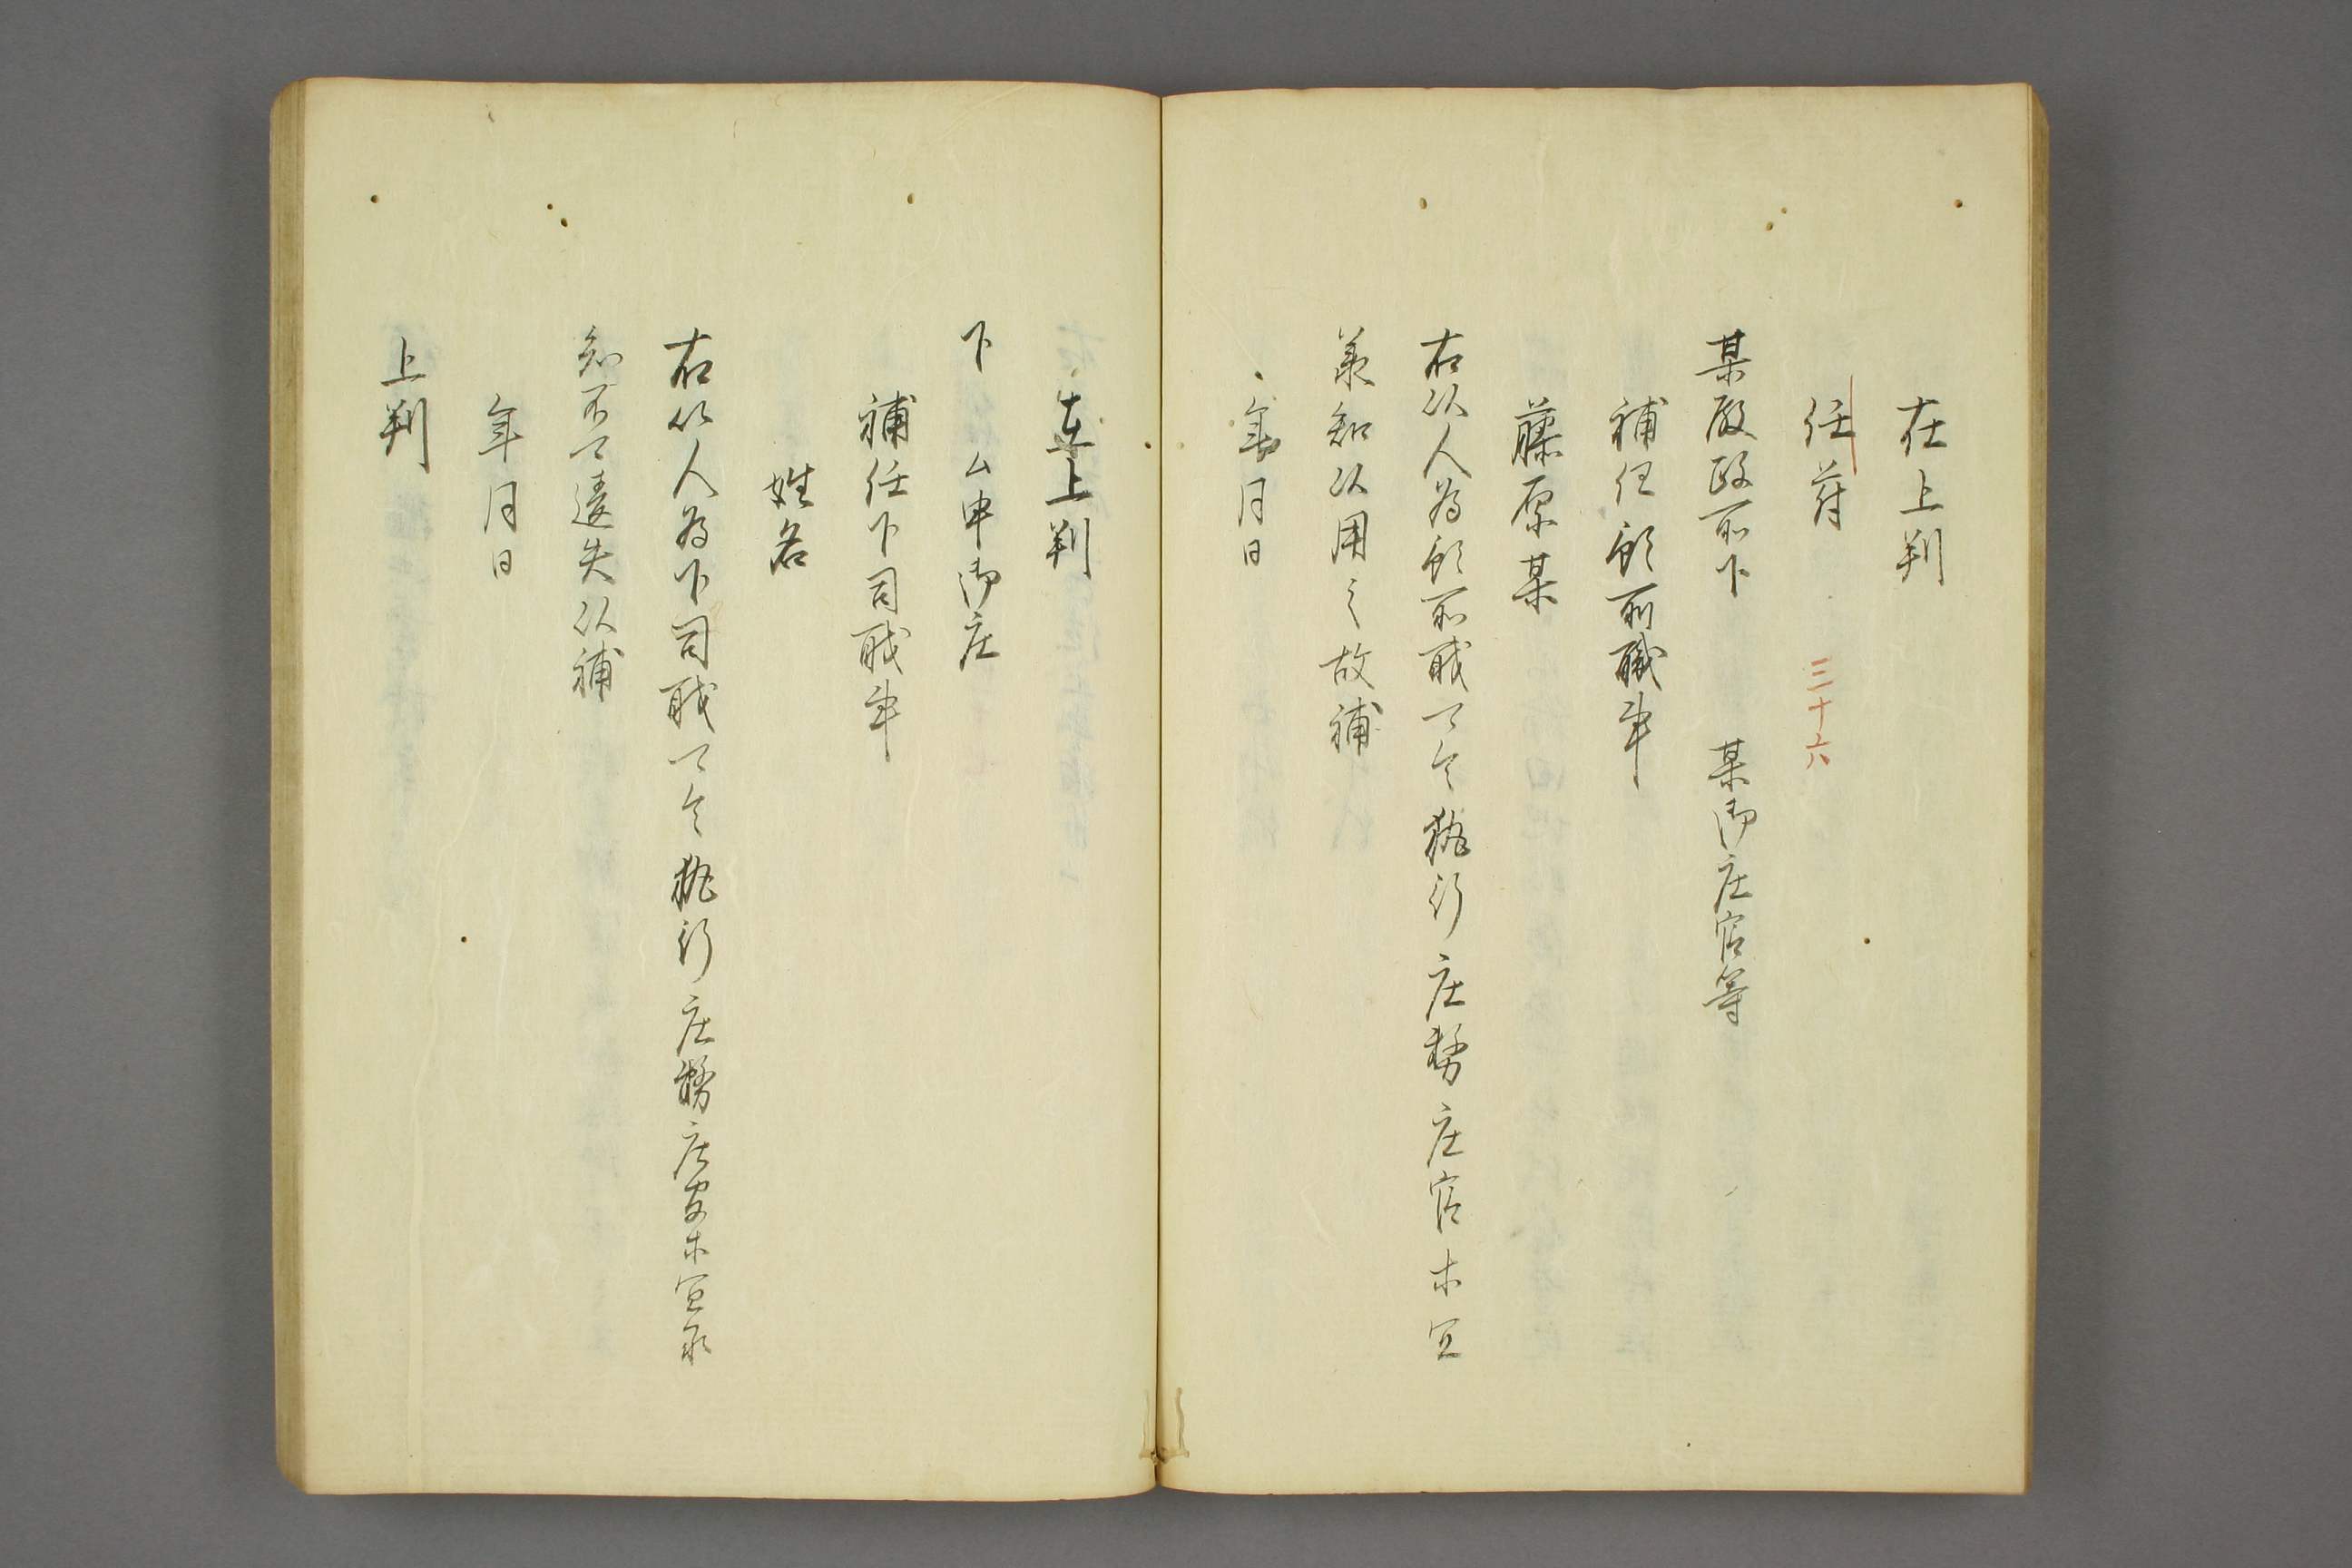 在上判
任苻 三十六
某殿政所下 某御庄官等
補任預所職事
藤原某
右以人為預所職可令執行庄務庄官木宜
承知以用之故補
年月日
在上判
下 ム申御庄
補任下司職事
姓名
右以人為下司職可令執行庄務庄官木宜承
知不可違失以補
年月日
上判